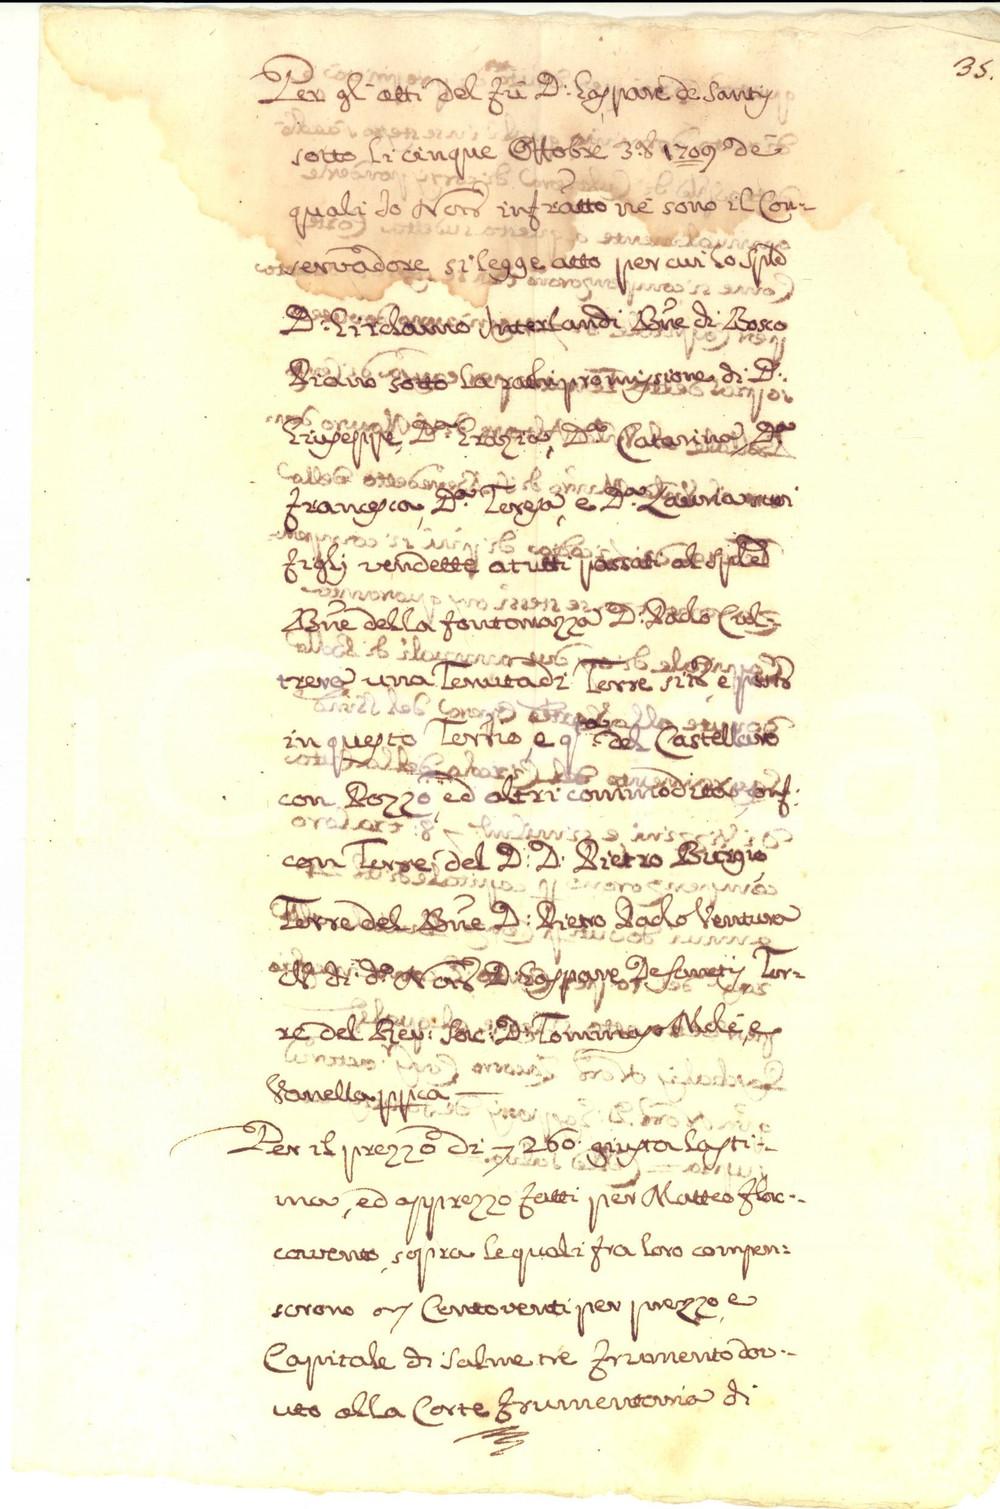 35.
Per gl'atti del fù D: Gaspare de Santis
sotto li cinque Ottobre 3.ª 1709 de
quali io Not.r infratto nè sono il Con-
servadore si legge atto per cui lo Sp.le
D: Girolamo Interlandi B.ne di Bosco
Piano sotto la ratihipromissione di D:
Giuseppe, D.ª Grazia, D.ª Catarina, D.ª
Francesca, D.ª Teresa, e D.ª Lauria suoi
figlj vendette a tutti passati al Sp.le
B.ne della fontanazza D: Paolo Cul-
trera una Tenuta di Terre sit.e, e post.e
in questo Territo, e q.ta del Castelluzo
con Pozzo, ed altri commodità, conf:
con Terre del D: D: Pietro Burgio
Terre del B.ne D: Pietro Paolo Ventura
di d.º Not.r D: Gaspare De Santis Ter-
re del Rev: Sac: D: Tommaso Melè, e
Vanella ppica
Per il prezzo di 260: giusta la sti-
ma, ed apprezzo fatti per Matteo Flac-
cavento, sopra le quali fra loro compen-
sorono Centoventi per prezzo, e
Capitale di salme tre frumento dov-
uto alla Corte frumentaria di